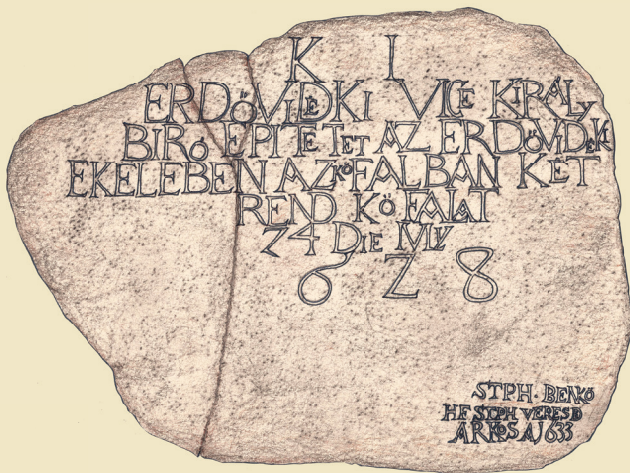 K I
ERDŐVIDEKI VICE KIRÁLY
BIRÓ EPITETET AZ ERDŐVIDEKI
EKELEBEN AZ KŐFALBAN KÉT
REND KŐFALAT
24 DIE MY
628
STPH. BENKŐ
HF STPH VERES D
ARKOS AJ 633